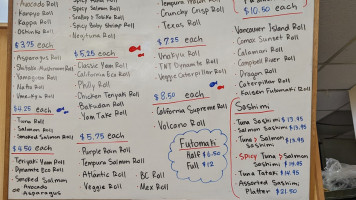 Avocado Roll
Kampyo Roll
Kappa Roll
Oshinko Roll
$3.75 each
Asparagus Roll
Shiitake Mushroom Roll
Yamagobo Roll
Natto Roll
Umekyu Roll
$4.25 each
- Tuna Roll
- Salmon Roll
- Smoked Salmon Roll
$4.50 each
Teriyaki Yam Roll
Dynamite Eco Roll
Smoked Salmon
or Avocado
or Asparagus
Spicy Tuna Roll
Spicy Salmon Roll
Scallop & Tobiko Roll
Spicy Baby Shrimp Roll
Negituna Roll
$5.25 each
Classic Yam Roll
California Eco Roll
Philly Roll
Chicken Teriyaki Roll
Bakudan Roll
Yam Take Roll
$5.75 each
- Purple Rain Roll
- Tempura Salmon Roll
- Atlantic Roll
- BC Roll
- Veggie Roll
- Mex Roll
Roll
- Crunchy Crisp Roll
- Texas Roll
$7.25 each
Unakyu Roll
TNT Dynamite Roll
Veggie Caterpillar Roll
$8.50 each
California Supreme Roll
Volcano Roll
Futomaki
Half $6.50
Full $12
$10.50 each
Vancouver Island Roll
Comox Sunset Roll
Calamari Roll
Campbell River Roll
Dragon Roll
Caterpillar Roll
- Kaisen Futomaki Roll
Sashimi
- Tuna Sashimi $13.95
- Salmon Sashimi $13.95
- Tuna & Salmon
Sashimi $14.95
- Spicy Tuna & Salmon
Sashimi $14.95
- Tuna Tataki $14.95
- Assorted Sashimi
Platter $21.50